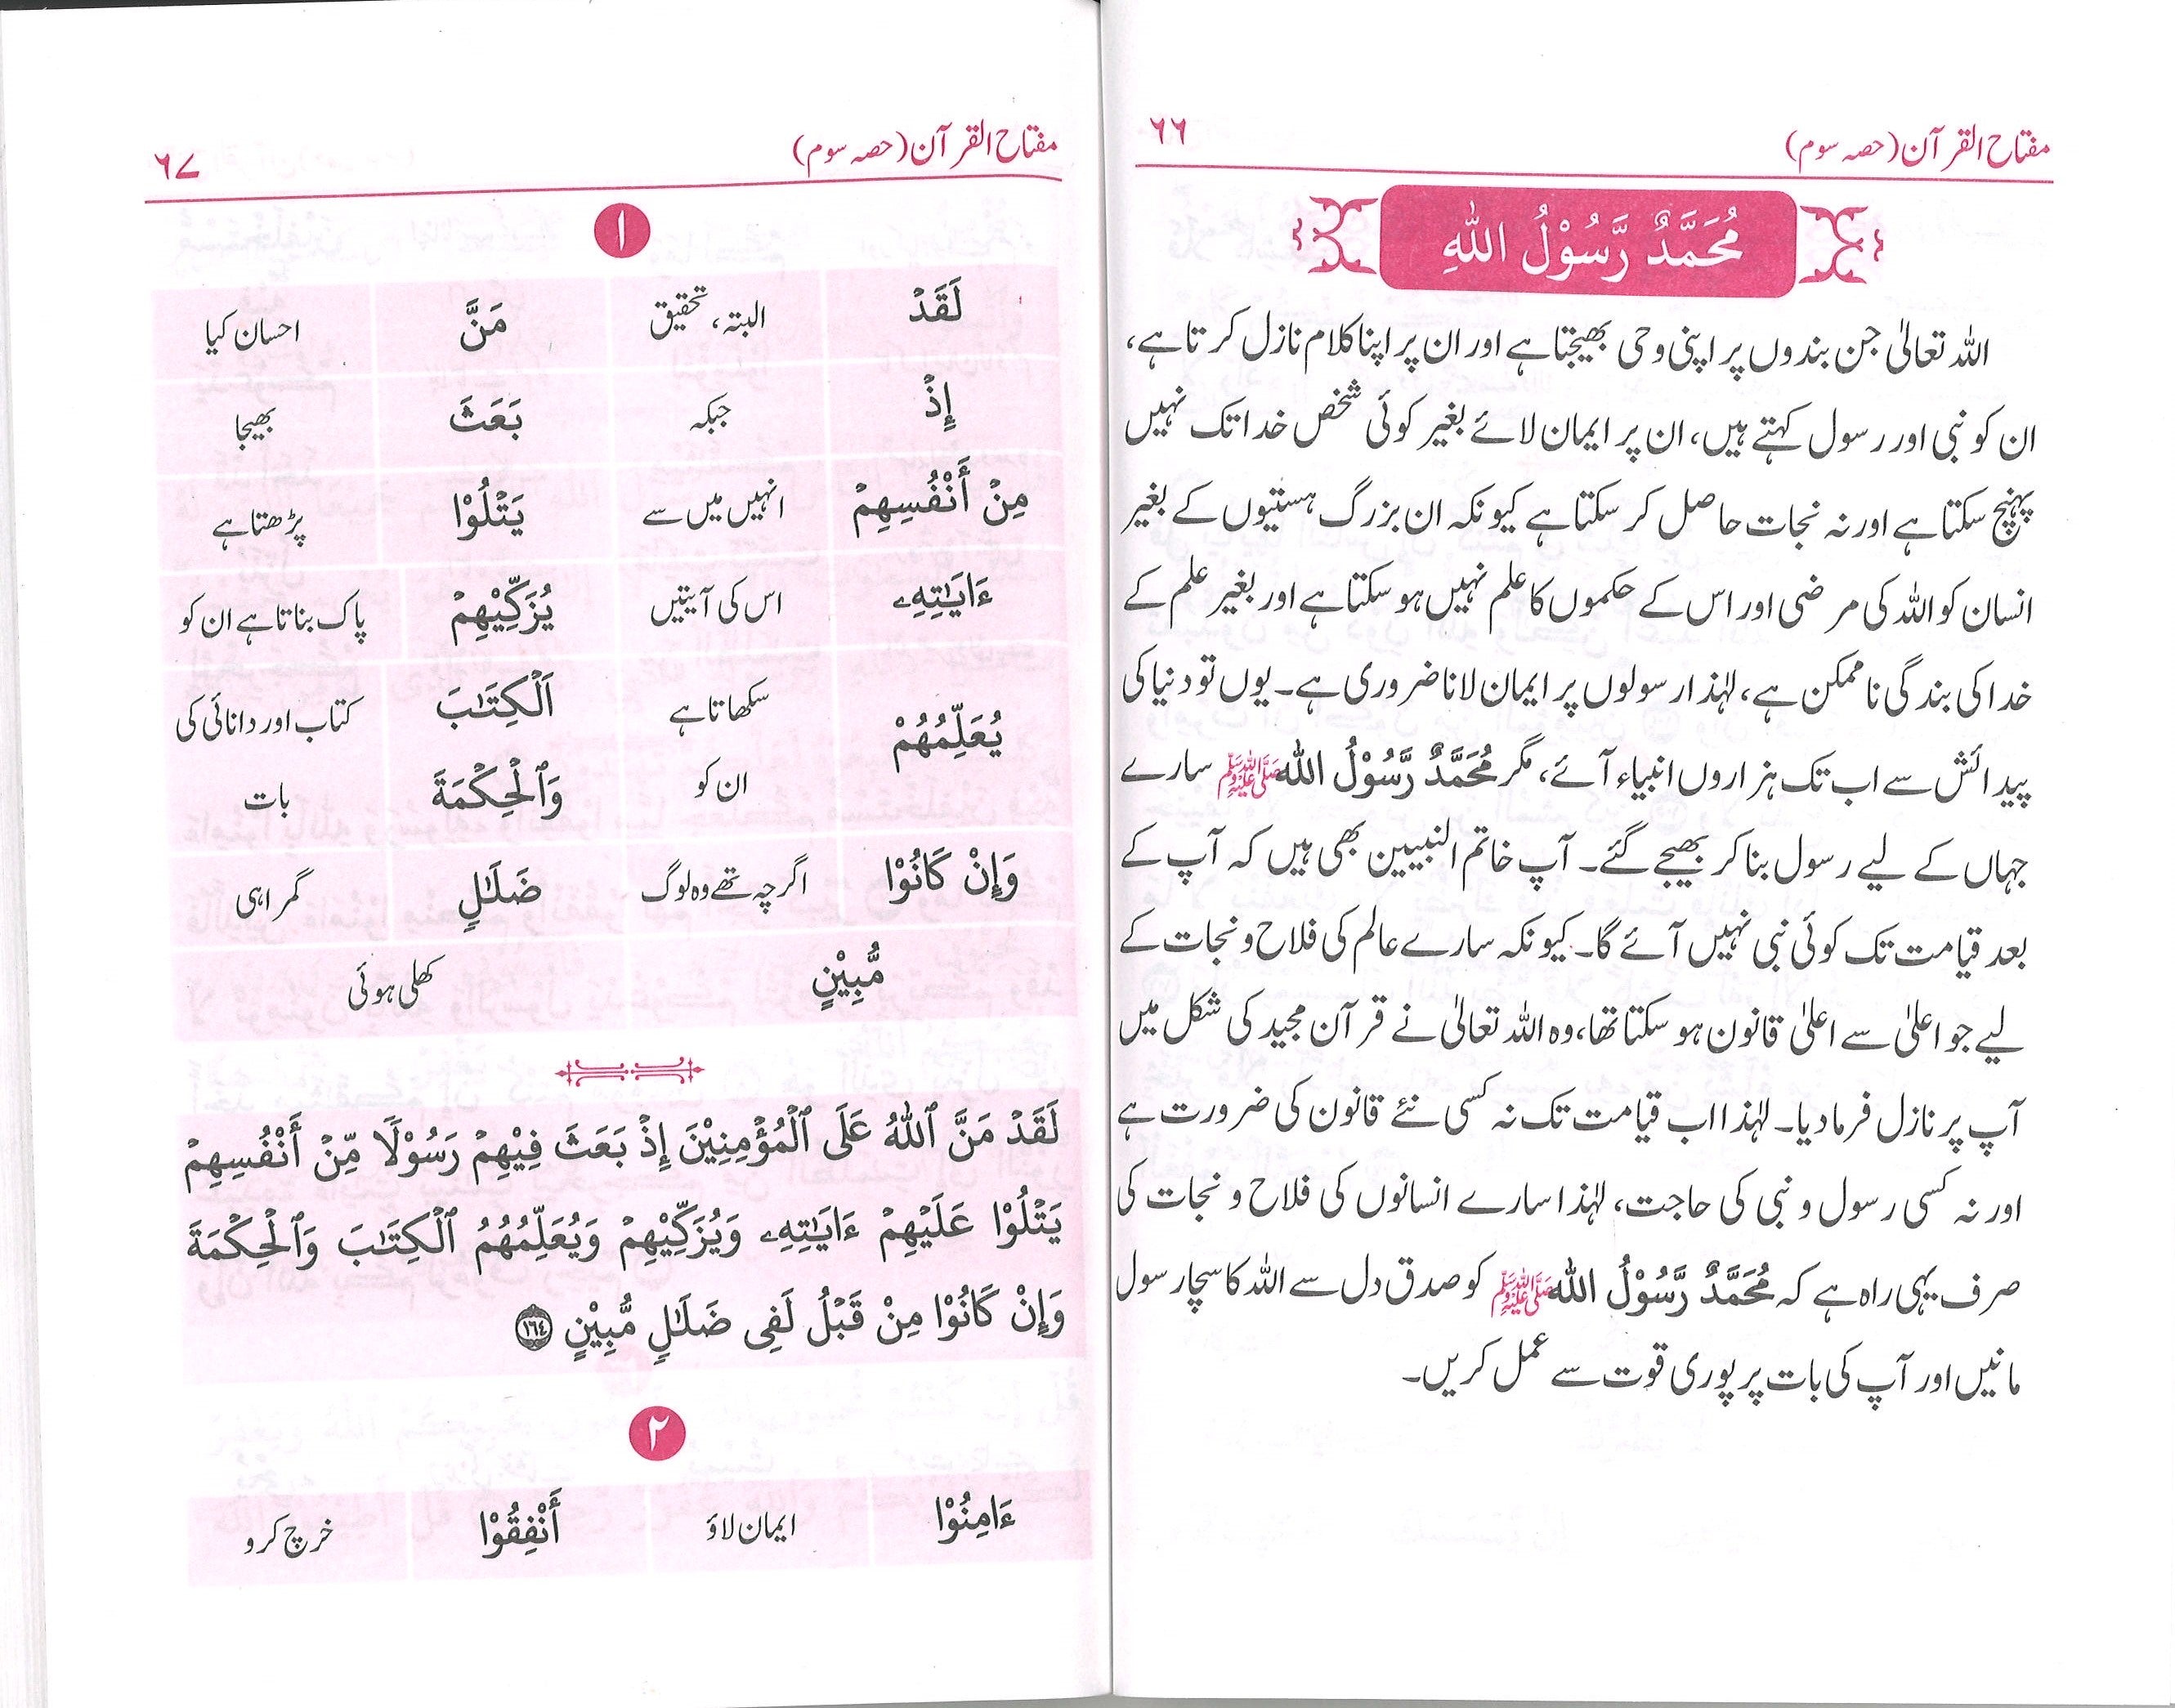 مفتاح القرآن (حصہ سوم) ٦٦
مُحَمَّدٌ رَّسُوْلُ اللّٰهِ
اللہ تعالیٰ جن بندوں پر اپنی وحی بھیجتا ہے اور ان پر اپنا کلام نازل کرتا ہے،
ان کو نبی اور رسول کہتے ہیں، ان پر ایمان لائے بغیر کوئی شخص خدا تک نہیں
پہنچ سکتا ہے اور نہ نجات حاصل کر سکتا ہے کیونکہ ان بزرگ ہستیوں کے بغیر
انسان کو اللہ کی مرضی اور اس کے حکموں کا علم نہیں ہو سکتا ہے اور بغیر علم کے
خدا کی بندگی ناممکن ہے، لہٰذا رسولوں پر ایمان لانا ضروری ہے۔ یوں تو دنیا کی
پیدائش سے اب تک ہزاروں انبیاء آئے، مگر مُحَمَّدٌ رَّسُوْلُ اللہ ﷺ سارے
جہاں کے لیے رسول بنا کر بھیجے گئے۔ آپ خاتم النبیین بھی ہیں کہ آپ کے
بعد قیامت تک کوئی نبی نہیں آئے گا۔ کیونکہ سارے عالم کی فلاح و نجات کے
لیے جو اعلیٰ سے اعلیٰ قانون ہو سکتا تھا، وہ اللہ تعالیٰ نے قرآن مجید کی شکل میں
آپ پر نازل فرما دیا۔ لہٰذا اب قیامت تک نہ کسی نئے قانون کی ضرورت ہے
اور نہ کسی رسول و نبی کی حاجت، لہٰذا سارے انسانوں کی فلاح و نجات کی
صرف یہی راہ ہے کہ مُحَمَّدٌ رَّسُوْلُ اللہ ﷺ کو صدق دل سے اللہ کا سچا رسول
مانیں اور آپ کی بات پر پوری قوت سے عمل کریں۔
مفتاح القرآن (حصہ سوم) ٦٧
١
لَقَدْ البتہ، تحقیق مَنَّ احسان کیا
إِذْ جبکہ بَعَثَ بھیجا
مِنْ أَنْفُسِهِمْ انہیں میں سے يَتْلُوْا پڑھتا ہے
ءَايَـٰتِهِۦ اس کی آیتیں يُزَكِّيْهِمْ پاک بناتا ہے ان کو
يُعَلِّمُهُمْ سکھاتا ہے ان کو اَلْكِتَـٰبَ وَٱلْحِكْمَةَ کتاب اور دانائی کی بات
وَإِنْ كَانُوْا اگرچہ تھے وہ لوگ ضَلَـٰلٍ گمراہی
مُّبِيْنٍ کھلی ہوئی
لَقَدْ مَنَّ ٱللّٰهُ عَلَى ٱلْمُؤْمِنِيْنَ إِذْ بَعَثَ فِيْهِمْ رَسُوْلًا مِّنْ أَنْفُسِهِمْ
يَتْلُوْا عَلَيْهِمْ ءَايَـٰتِهِۦ وَيُزَكِّيْهِمْ وَيُعَلِّمُهُمُ ٱلْكِتَـٰبَ وَٱلْحِكْمَةَ
وَإِنْ كَانُوْا مِنْ قَبْلُ لَفِى ضَلَـٰلٍ مُّبِيْنٍ ١٦٤
٢
ءَامِنُوْا ایمان لاؤ أَنْفِقُوْا خرچ کرو